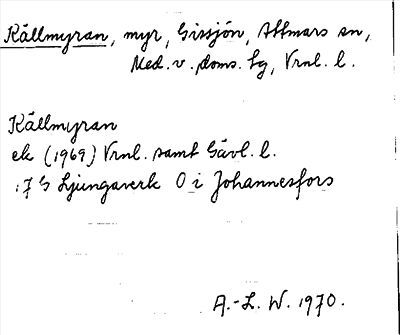 Källmyran, myr, Gissjön, Attmars sn,
Med. v. doms. tg, Vrnl. l.
Källmyran
ek (1969) Vrnl. samt Gävl. l.
:7 G Ljungaverk O i Johannesfors
A.-L. W. 1970.